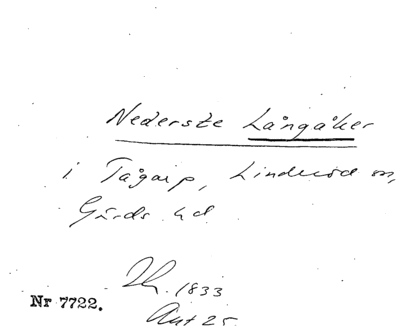 Nederste Långåker
i Tågarp, Linderöd sn,
Gärds hd
1833
Nr 7722.
Akt 25